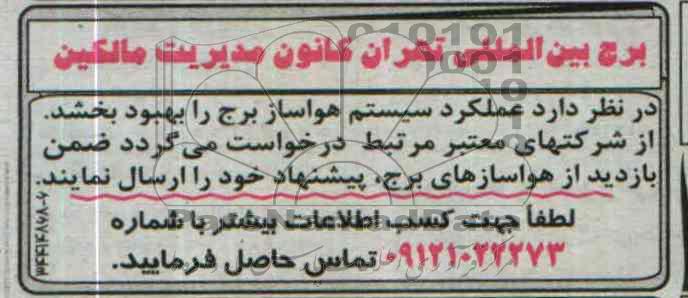 برج بین المللی تهران کانون مدیریت مالکین
در نظر دارد عملکرد سیستم هواساز برج را بهبود بخشد.
از شرکتهای معتبر مرتبط درخواست می گردد ضمن
بازدید از هواسازهای برج، پیشنهاد خود را ارسال نمایند.
لطفاً جهت کسب اطلاعات بیشتر با شماره
۰۹۱۲۱۰۲۲۲۷۳ تماس حاصل فرمایید.